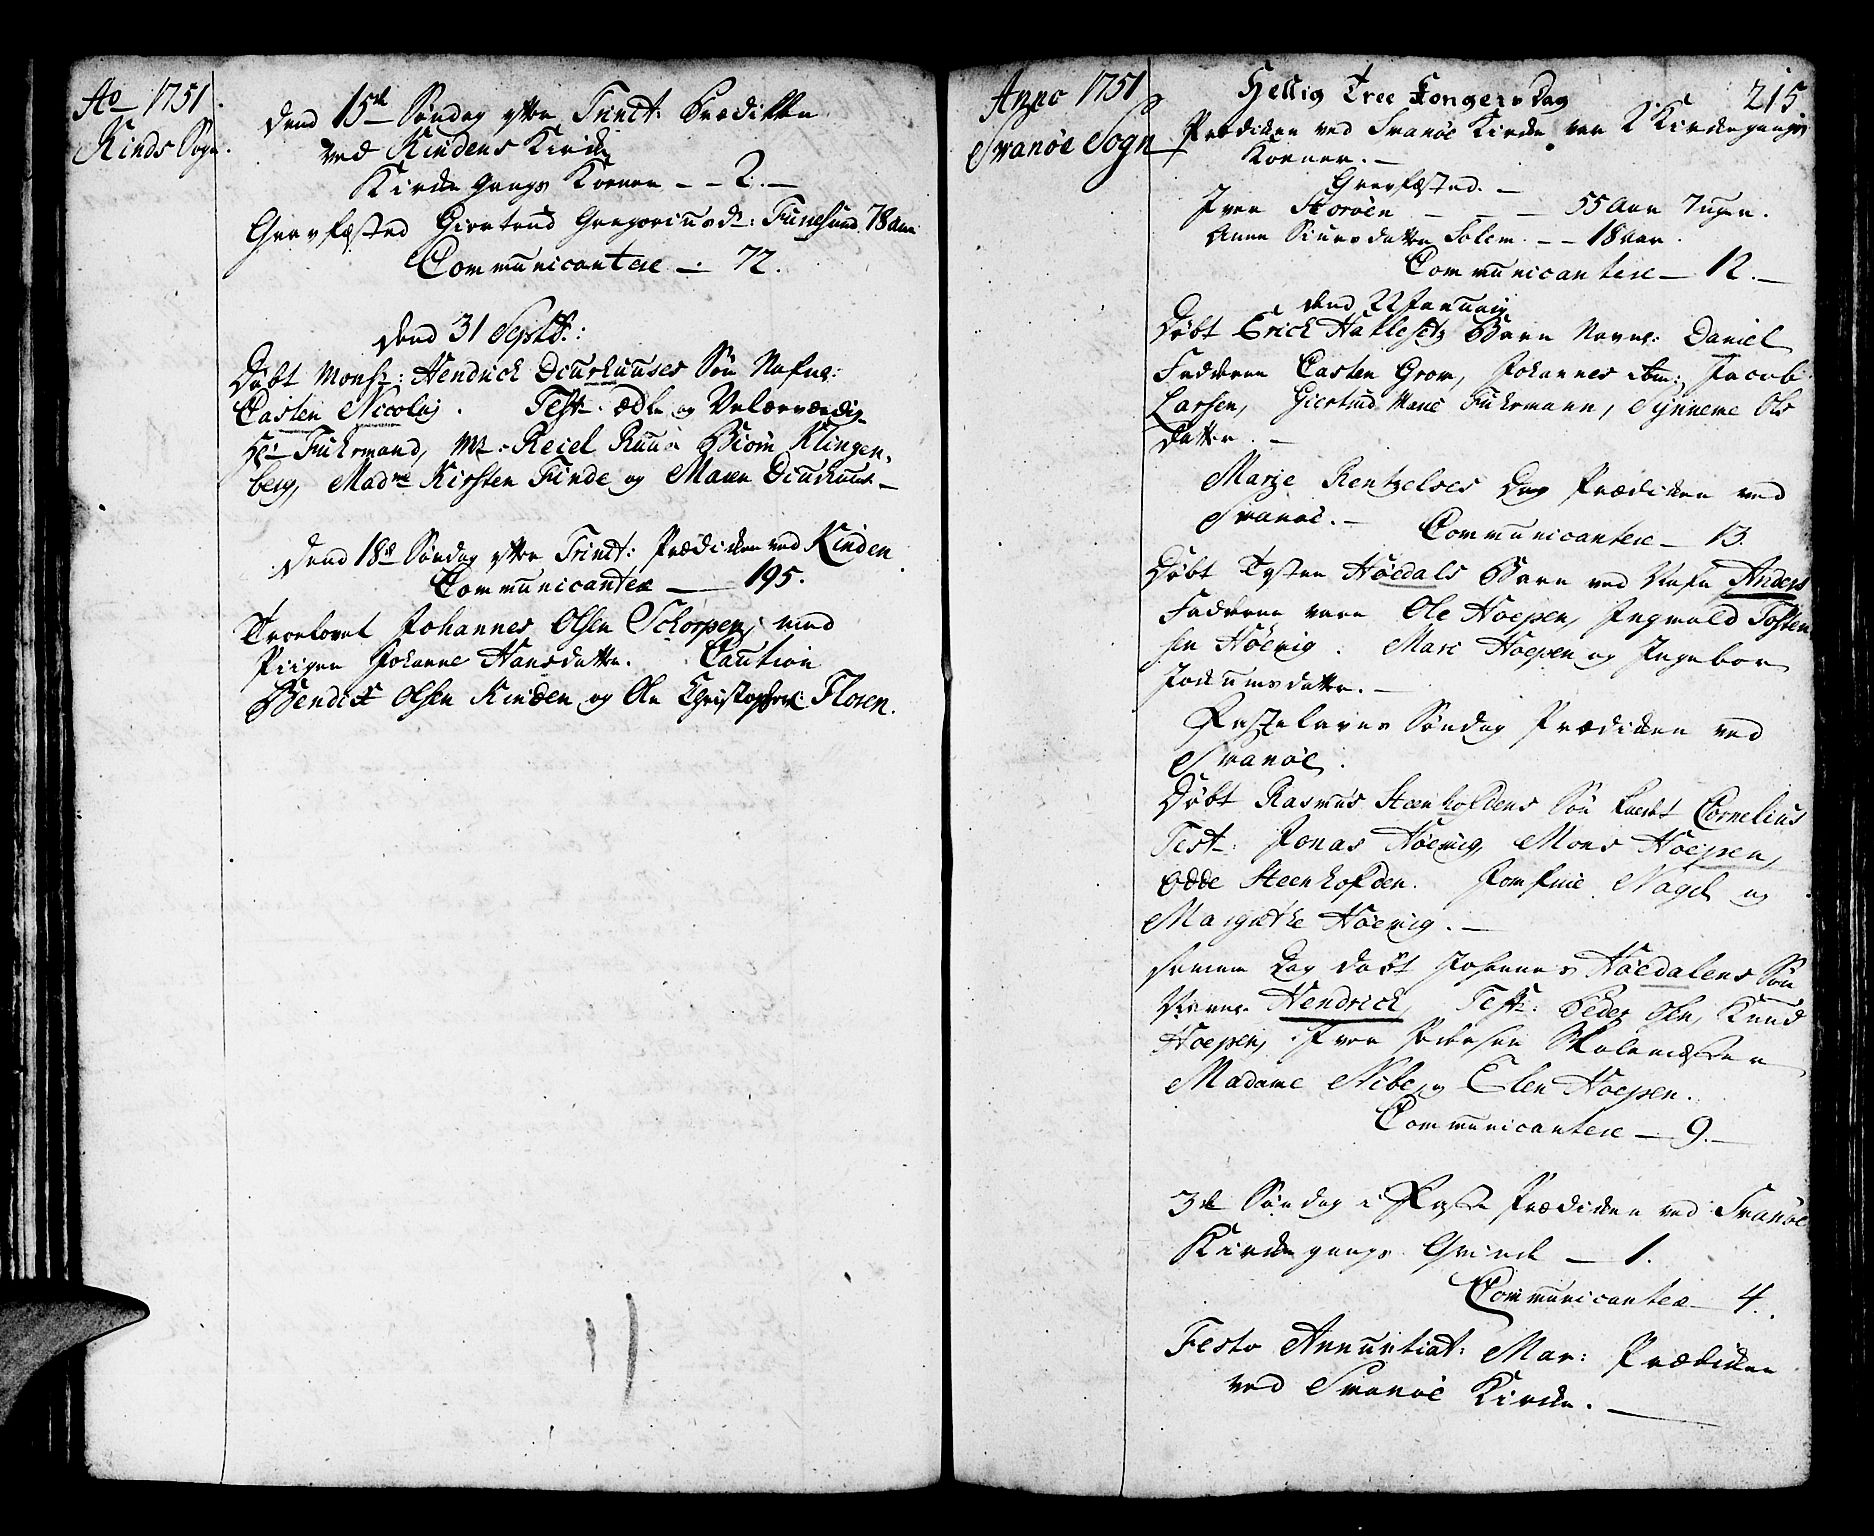 Ao 1751.
Kinds Sogn.
Dend 15de Søndag efter Trinit: Prædikken
ved Kindens Kirke
Kirke gangs Koener - - 2. -
Grevfæsted Giertrud Gregoriusd: Funesund 78 Aar
Communicantere - 72.
Dend 31 Septbr:
Døbt Monsr: Hendrick Diurhuuses Søn Nafnl:
Casten Nicolaj. Test: ædle og Velærværdig
Hr: Fuhrmand, Mr: Reiel Ruus Biørn Klingen-
berg, Madme Kirsten Finde og Maren Diurhuus -
Dend 18de Søndag efter Trinit: Prædicken ved Kinden
Communicantere - 195.
Troelovet Johannes Olsen Schorpen med
Piigen Johanne Hansdatter. Caution
Bendix Olsen Kinden og Ole Christophers: Floren.
Anno 1751
Svanøe Sogn
Hellig Tree Kongers Dag
215
Prædicken ved Svanøe Kirke var 2 Kirkegangs
Koener. -
Grevfæsted. -
Iver Storøen - - - 55 Aar 7 ugen.
Anne Siursdatter Solem. - - 18 Aar.
Communicantere - 12. -
Dend 22 Januarij
Døbt Erick Hatlesetz Barn Navnl: Daniel
Fadderne Casten Grov, Johannes ibm:, Jacob
Larsen, Giertrud Marie Fuhrmann, Synneve Ols
datter. -
Marje Rentzelses Dag Prædicken ved
Svanøe. - Communicantere - 13.
Døbt Tosten Høedals Barn ved Nafn Anders
Fadderne vare Ole Hoepen, Ingvald Tosten
sen Høevig. Mari Hoepen og Ingebor
Jockumsdatter. -
Fastelavns Søndag Prædicken ved
Svanøe.
Døbt Rasmus Steenhofdens Søn kaldt Cornelius
Test: Jonas Høevig, Mons Hoepen,
Odde Steenhofden. Jomfrue Nagel og
Margrethe Høevig. -
Samme Dag døbt Johannes Høedalens Søn
Navnl. Hendrick, Test: Peder Olsn, Knud
Hoepen, Iver Skolemester
Madame Nibe og Elen Hoepen.
Communicantere - 9. -
3de Søndag i Faste Prædicken ved Svanøe
Kirke gangs Qvinde - 1.
Communicantere - 4.
Festo Annuntiat: Mar: Prædicken
ved Svanøe Kirke. -